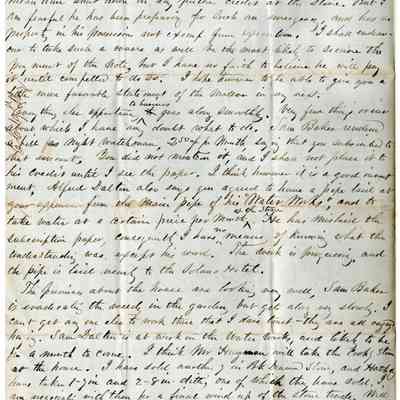 mean time shut down in any further credits at the Store. But I
am fearful he has been preparing for such an emergency, and has no
property in his possession not exempt from execution. I shall endeav-
our to take such a course as will be the most likely to secure the
payment of the Note, but I have no faith to believe he will pay
it until compelled to do so. I hope however to be able to give you a
little more favorable statement of the matter in my next.
Everything else appertaining to business goes along smoothly. Very few things occur
about which I have any doubt what to do. Sam Baker rendered
a bill for Night watchman, 2.50 p. Month, says that you subscribed to
that amount. You did not mention it, and I shall not place it to
his credit until I see the paper. I think however it is a good invest
ment. Alfred Dalton also says you agreed to have a pipe laid at
your expense from the main pipe of his Water Works, and to
take water at a certain price per Month at the Store. He has mislaid the
subscription paper, consequently I have no means of knowing what the
understanding was, except his word. The work is progressing, and
the pipe is laid nearly to the Solano Hotel.
The premises about the house are looking very well. Sam Baker
is eradicating the weeds in the garden but gets along very slowly. I
can't get any one else to work there that I dare trust - they are all
busy. Sam Dalton is at work on the Water Works, and likely to be
for a month to come. I think Mr will take the Cook Stove
at the house. I have sold another
have taken 1-7 in and 2-8 in ditto, one of which they have sold. I
am with them for a of the Stove trade. Will